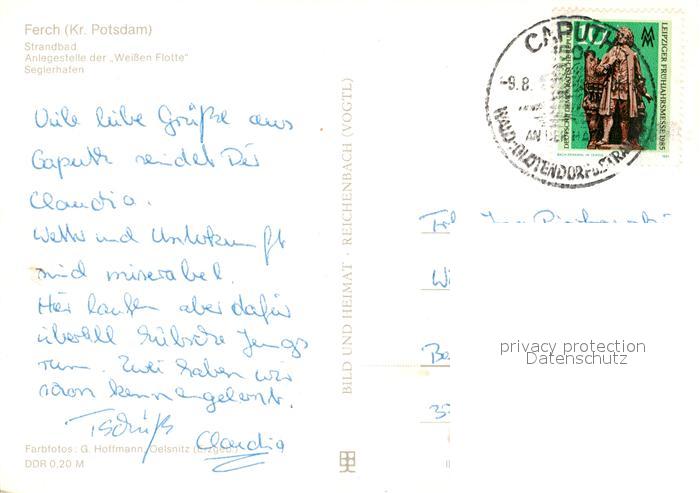 Ferch (Kr. Potsdam)
Strandbad
Anlegestelle der „Weißen Flotte"
Seglerhafen
Viele liebe Grüße aus
Caputh sendet Dir
Claudia.
Wetter und Unterkunft
sind miserabel.
Hier laufen aber dafür
überall hübsche Jungs
rum. Zwei haben wir
schon kennengelernt.
Tschüß
Claudia
Farbfotos: G. Hoffmann, Oelsnitz (Erzgeb.)
DDR 0,20 M
BILD UND HEIMAT · REICHENBACH (VOGTL)
CAPUTH
-9.8.
WALD-BLÜTENDORF
LEIPZIGER FRÜHJAHRSMESSE 1985
10
DEUTSCHE DEMOKRATISCHE REPUBLIK
privacy protection
Datenschutz